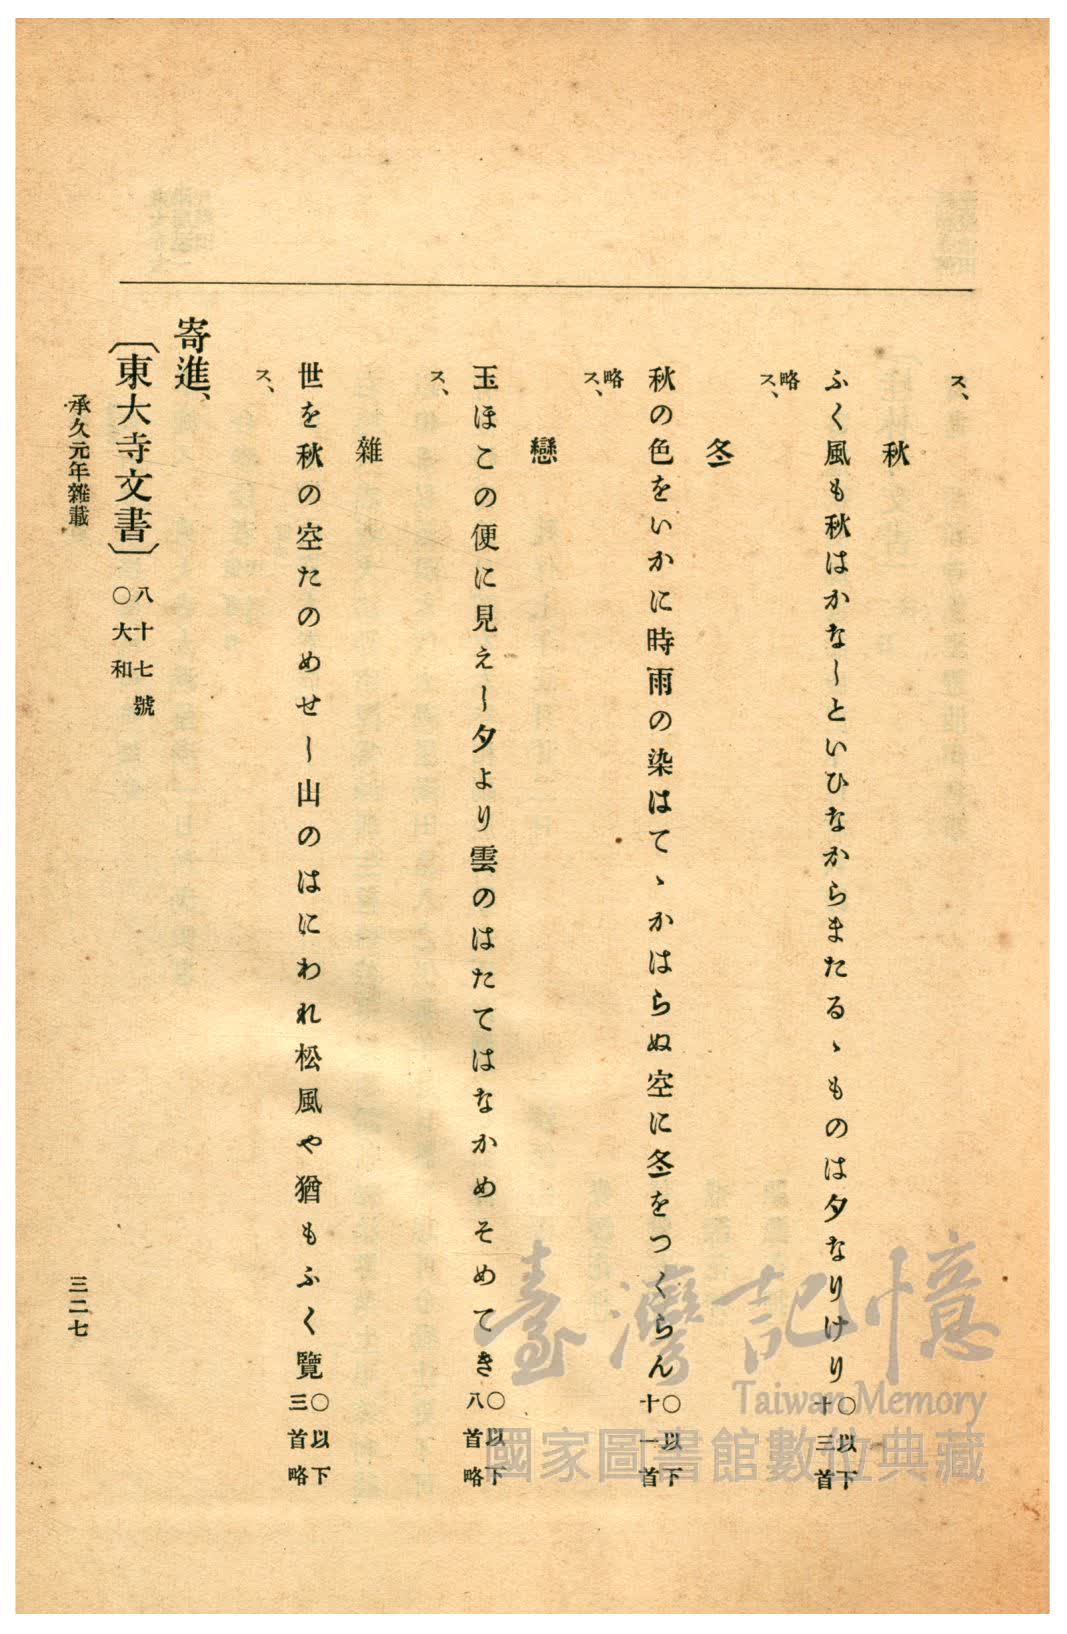 ス、
秋
ふく風も秋はかなしといひなからまたるゝものは夕なりけり〇以下十三首
略ス、
冬
秋の色をいかに時雨の染はてゝかはらぬ空に冬をつくらん〇以下十一首
略ス、
戀
玉ほこの便に見えし夕より雲のはたてはなかめそめてき〇以下八首略
ス、
雜
世を秋の空たのめせし山のはにわれ松風や猶もふく覽〇以下三首略
ス、
寄進、
〔東大寺文書〕八十七號〇大和
承久元年雜載
三二七
臺灣記憶
Taiwan Memory
國家圖書館數位典藏